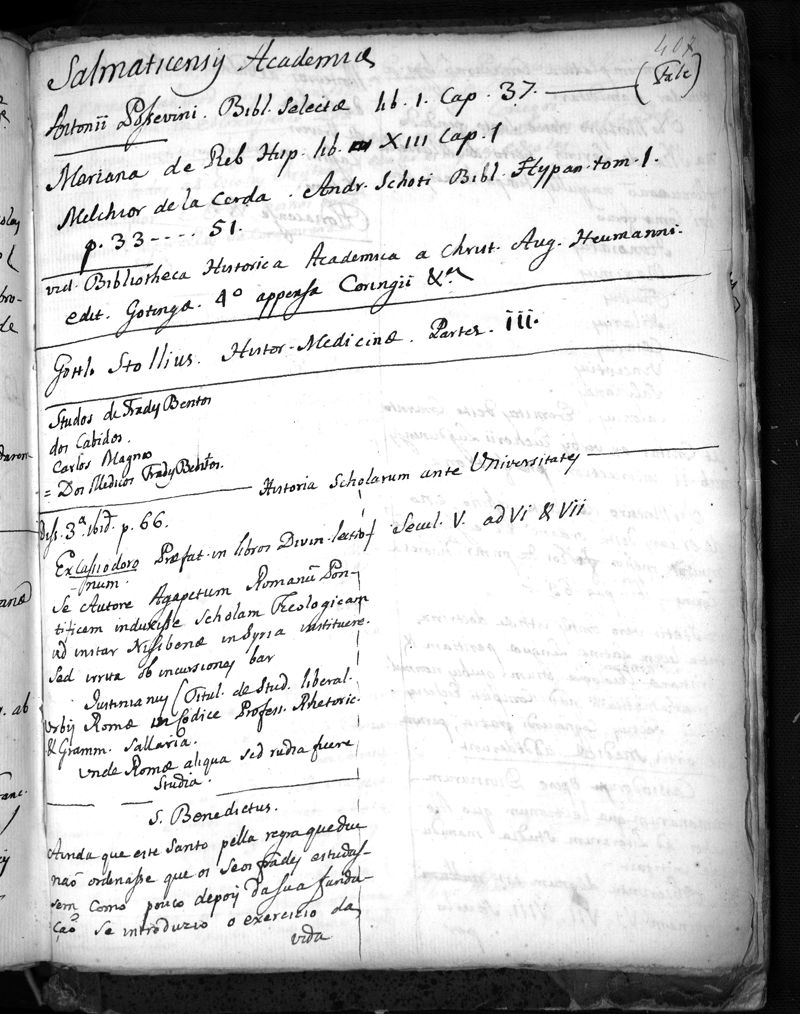 Salmaticensis Academiæ
Antonii Possevini. Bibl. Selectæ lib. 1. Cap. 37. (Fale)
Mariana de Reb Hisp. lib. XIII Cap. 1
Melchior de la Cerda. Andr. Schoti Bibl. Hyspan. tom. 1.
p. 33 - - - - 51.
vid. Bibliotheca Historica Academica a Christ. Aug. Heumanni.
edit. Gotingæ. 4º appensa Coringii &
Gottl. Stollius. Histor. Medicinæ. Partes. III.
Studos de Frades Bentos
dos Cabidos.
Carlos Magno
= Dos Medicos Frades Bentos.
Historia Scholarum ante Universitates
Diss. 3ª. ibid. p. 66.
Secul. V. ad VI & VII
Ex Cassiodoro Præfat. in libros Divin. lectio-
num.
Se Autore Agapetum Romanũ Pon-
tificem induxisse Scholam Teologicam
ad instar Nisibenæ in Syria instituere.
Sed irrita ob incursiones bar
Justinianus Titul. de Stud. liberal.
Urbis Romæ in Codice Profess. Rhetoric.
& Gramm. Sallaria.
Unde Romæ aliqua sed rudia fuere
Studia.
S. Benedictus.
Ainda que este Santo pella regra que deu
naõ ordenasse que os Seos frades estudas-
sem como pouco depois da sua funda-
çaõ se introduzio o exercicio da
vida